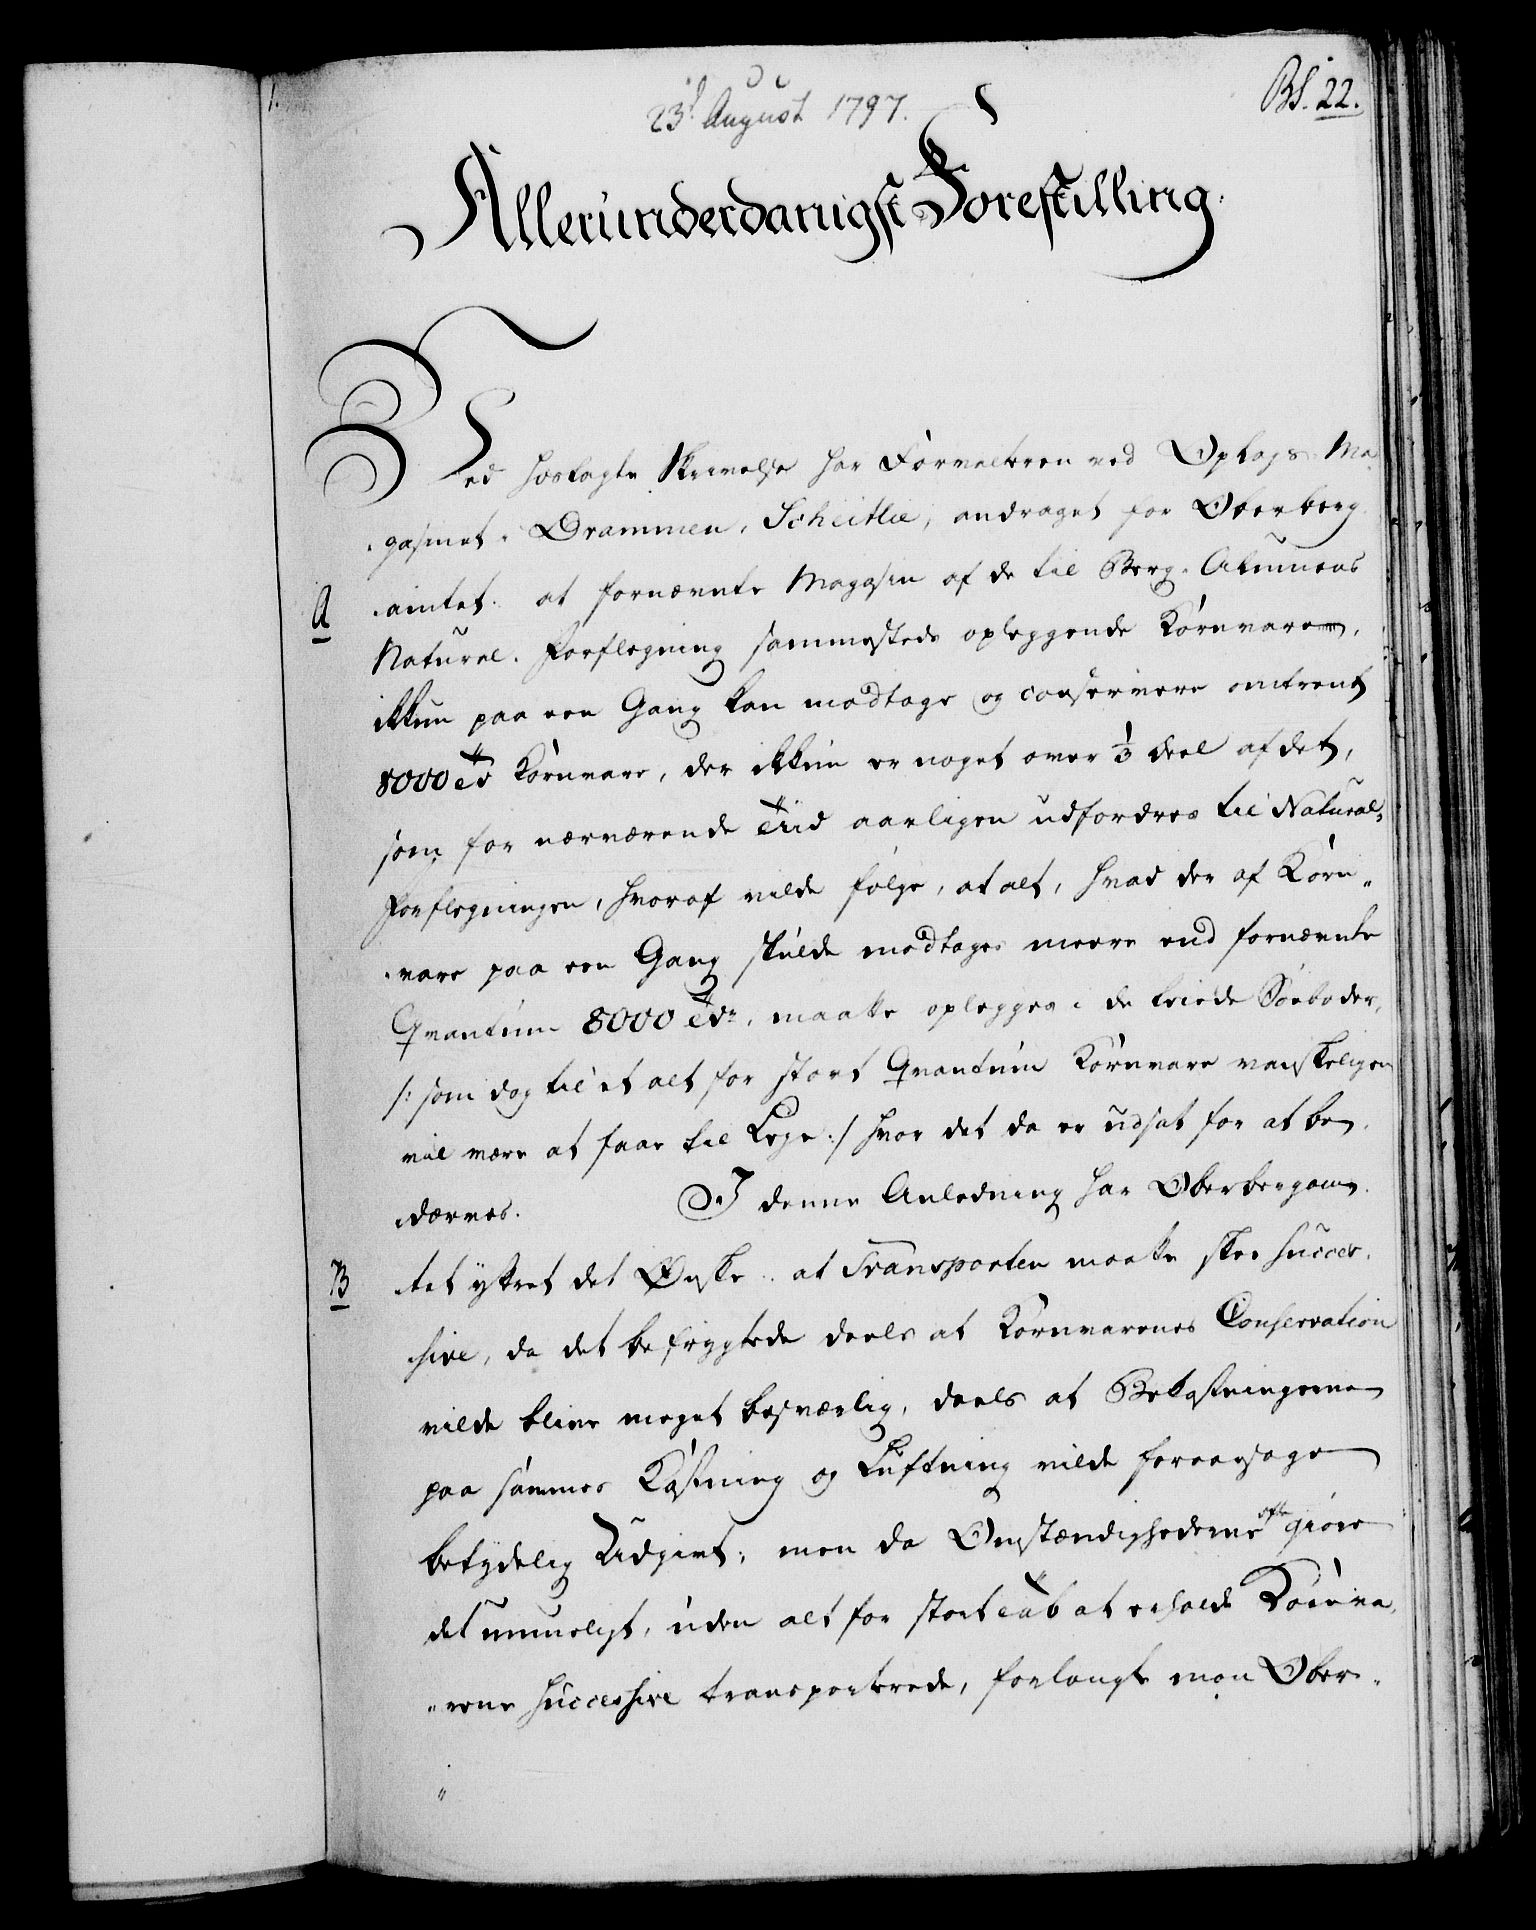 1.
23d August 1797.
Bf. 22.
Allerunderdanigst Forestilling.
Ved hoslagte Skrivelse har Forvalteren ved Oplags-Ma-
gasinet i Drammen, Scheitlie, andraget for Oberberg-
A
amtet: at fornævnte Magasin af de til Berg-Almuens
Natural-Forflegning sammesteds opleggende Kornvarer,
ikkun paa een Gang kan modtage og conservere omtrent
8000 Tdr Kornvare, der ikkun er noget over 1/3 deel af det,
som for nærværende Tiid aarligen udfordres til Natural-
Forflegningen, hvoraf vilde følge, at alt, hvad der af Korn-
vare paa een Gang skulde modtages meere end fornævnte
Qvantum 8000 Tdr, maatte oplegges i de leiede Søeboder,
/: som dog til et alt for stort Qvantum Kornvare vanskeligen
vil være at faae til Leye :/ hvor det da er udsat for at be-
dærves. I denne Anledning har Oberbergam-
B
tet yttret det Ønske: at Transporten maatte skee succes-
sive, da det befrygtede deels at Kornvarenes Conservation
vilde blive meget besværlig, deels at Bekostningerne
paa sammes Kastning og Luftning vilde foraarsage
betydelig Udgivt; men da Omstændighederne ofte giøre
det umueligt, uden alt for stort Tab at erholde Kornva-
rene successive transporterede, forlangte man Ober-